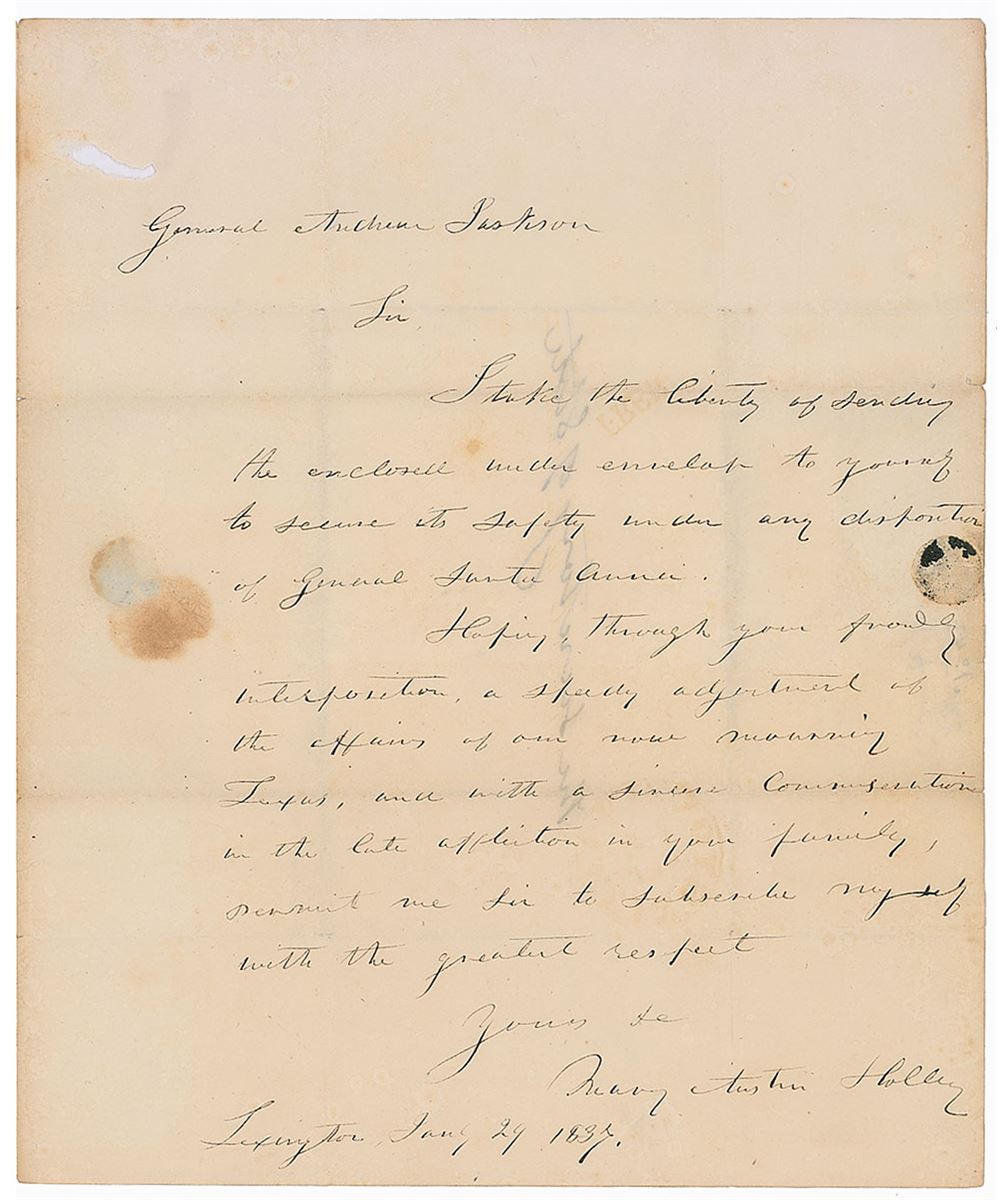 General Andrew Jackson
Sir,
I take the liberty of sending
the enclosed under envelop to yourself
to secure its safety under any disposition
of General Santa Anna.
Hoping, through your friendly
interposition, a speedy adjustment of
the affairs of our now mourning
Texas, and with a sincere Commiseration
in the late affliction in your family,
permit me Sir to subscribe myself
with the greatest respect
Yours &c
Mary Austin Holley
Lexington, Jany 29 1837.